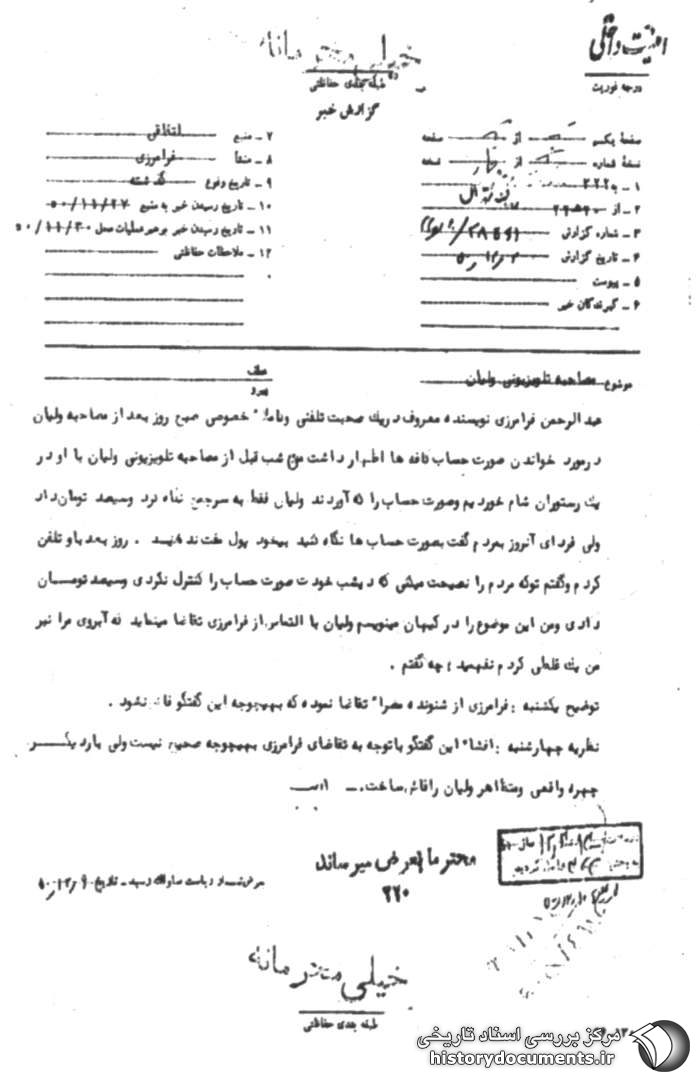 امنیت داخلی
درجه فوریت
خیلی محرمانه
طبقه بندی حفاظتی
گزارش خبر
صفحه یکم از صفحه
نسخه شماره از چهار نسخه
۱ - به ۲۲۲
۲ - از
۳ - شماره گزارش
۴ - تاریخ گزارش
۵ - پیوست
۶ - گیرندگان خبر
۷ - منبع اتفاقی
۸ - منشأ فرامرزی
۹ - تاریخ وقوع گذشته
۱۰ - تاریخ رسیدن خبر به منبع ۵۰/۱۱/۲۷
۱۱ - تاریخ رسیدن خبر برهبر عملیات محل ۵۰/۱۱/۳۰
۱۲ - ملاحظات حفاظتی
موضوع مصاحبه تلویزیونی ولیان
عطف
پیرو
عبدالرحمن فرامرزی نویسنده معروف دریک صحبت تلفنی وکاملا" خصوصی صبح روز بعد از مصاحبه ولیان
درمورد خواندن صورت حساب کافه ها اظهار داشت من شب قبل از مصاحبه تلویزیونی ولیان با او در
یک رستوران شام خوردیم وصورت حساب را که آوردند ولیان فقط به سرجمع نگاه کرد وسیصد تومان داد
ولی فردای آنروز بمردم گفت بصورت حساب ها نگاه کنید بیخود پول مفت ندهید . روز بعد باو تلفن
کردم وگفتم توکه مردم را نصیحت میکنی که دیشب خودت صورت حساب را کنترل نکردی وسیصد تومان
دادی ومن این موضوع را در کیهان مینویسم ولیان با التماس از فرامرزی تقاضا مینماید که آبروی مرا نبر
من یک غلطی کردم نفهمیدم چه گفتم .
توضیح یکشنبه : فرامرزی از شنونده مصرا" تقاضا نموده که بهیچوجه این گفتگو فاش نشود .
نظریه چهارشنبه : افشاء این گفتگو باتوجه به تقاضای فرامرزی بهیچوجه صحیح نیست ولی باردیگر
چهره واقعی ومتظاهر ولیان رافاش ساخت .
محترما بعرض میرساند
۲۲۰
بعرض ریاست ساواک رسید - تاریخ
خیلی محرمانه
طبقه بندی حفاظتی
مرکز بررسی اسناد تاریخی
historydocuments.ir